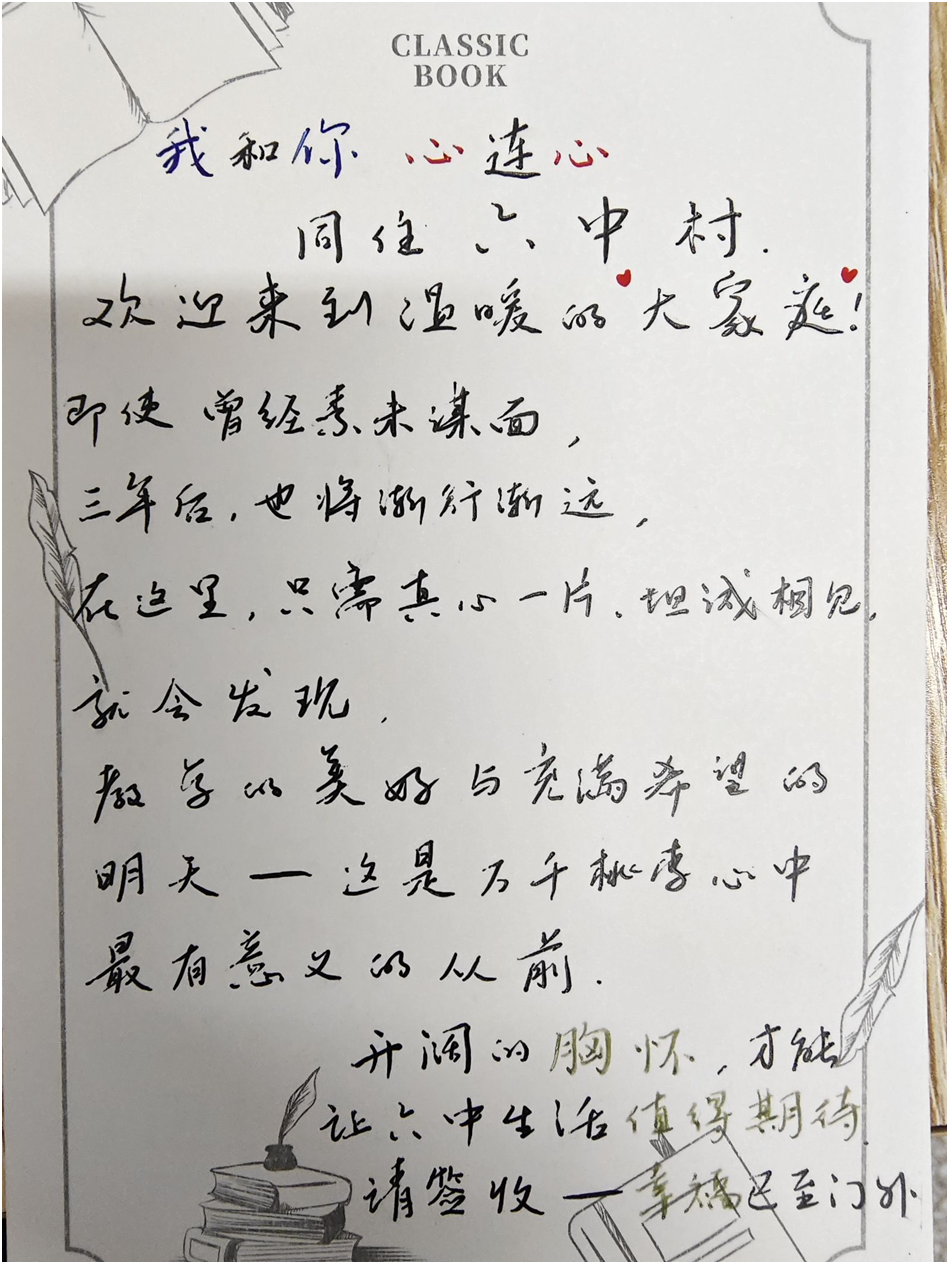 CLASSIC
BOOK
我和你 心连心
同住六中村.
欢迎来到温暖的大家庭!
即使曾经素未谋面,
三年后,也将渐行渐远,
在这里,只需真心一片、坦诚相见,
就会发现,
教学的美好与充满希望的
明天—这是万千桃李心中
最有意义的从前.
开阔的胸怀,才能
让六中生活值得期待.
请签收—幸福已至门外